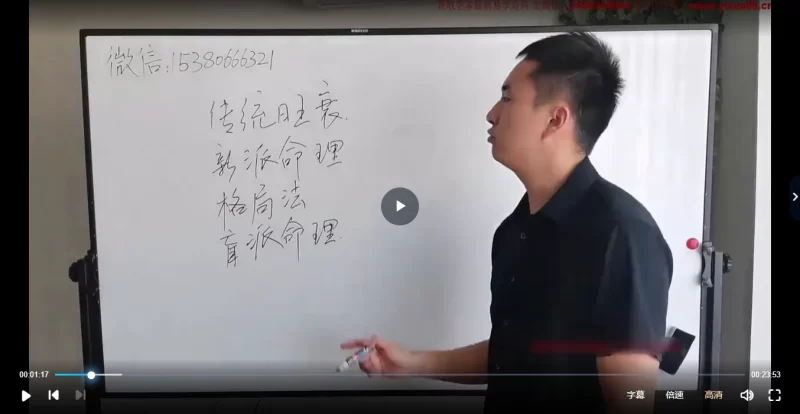 微信:15380666321
传统旺衰.
新派命理
格局法
盲派命理.
00:01:17
00:23:53
字幕
倍速
高清